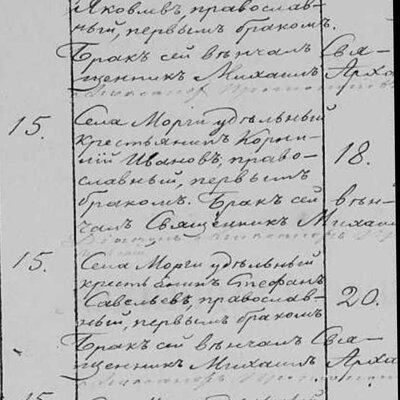 Яковлевъ, православ-
ный, первымъ бракомъ.
Бракъ сей вѣнчалъ Свя-
щенникъ Михаилъ Арха
15. Села Морги удѣльный
крестьянинъ Корни-
лій Ивановъ, право- 18.
славный, первымъ
бракомъ. Бракъ сей вѣн-
чалъ Священникъ Михаил
15. Села Морги удѣльный
крестьянинъ Стефанъ
Савельевъ, православ- 20.
ный, первымъ бракомъ
Бракъ сей вѣнчалъ Свя
щенникъ Михаилъ Арха
15.